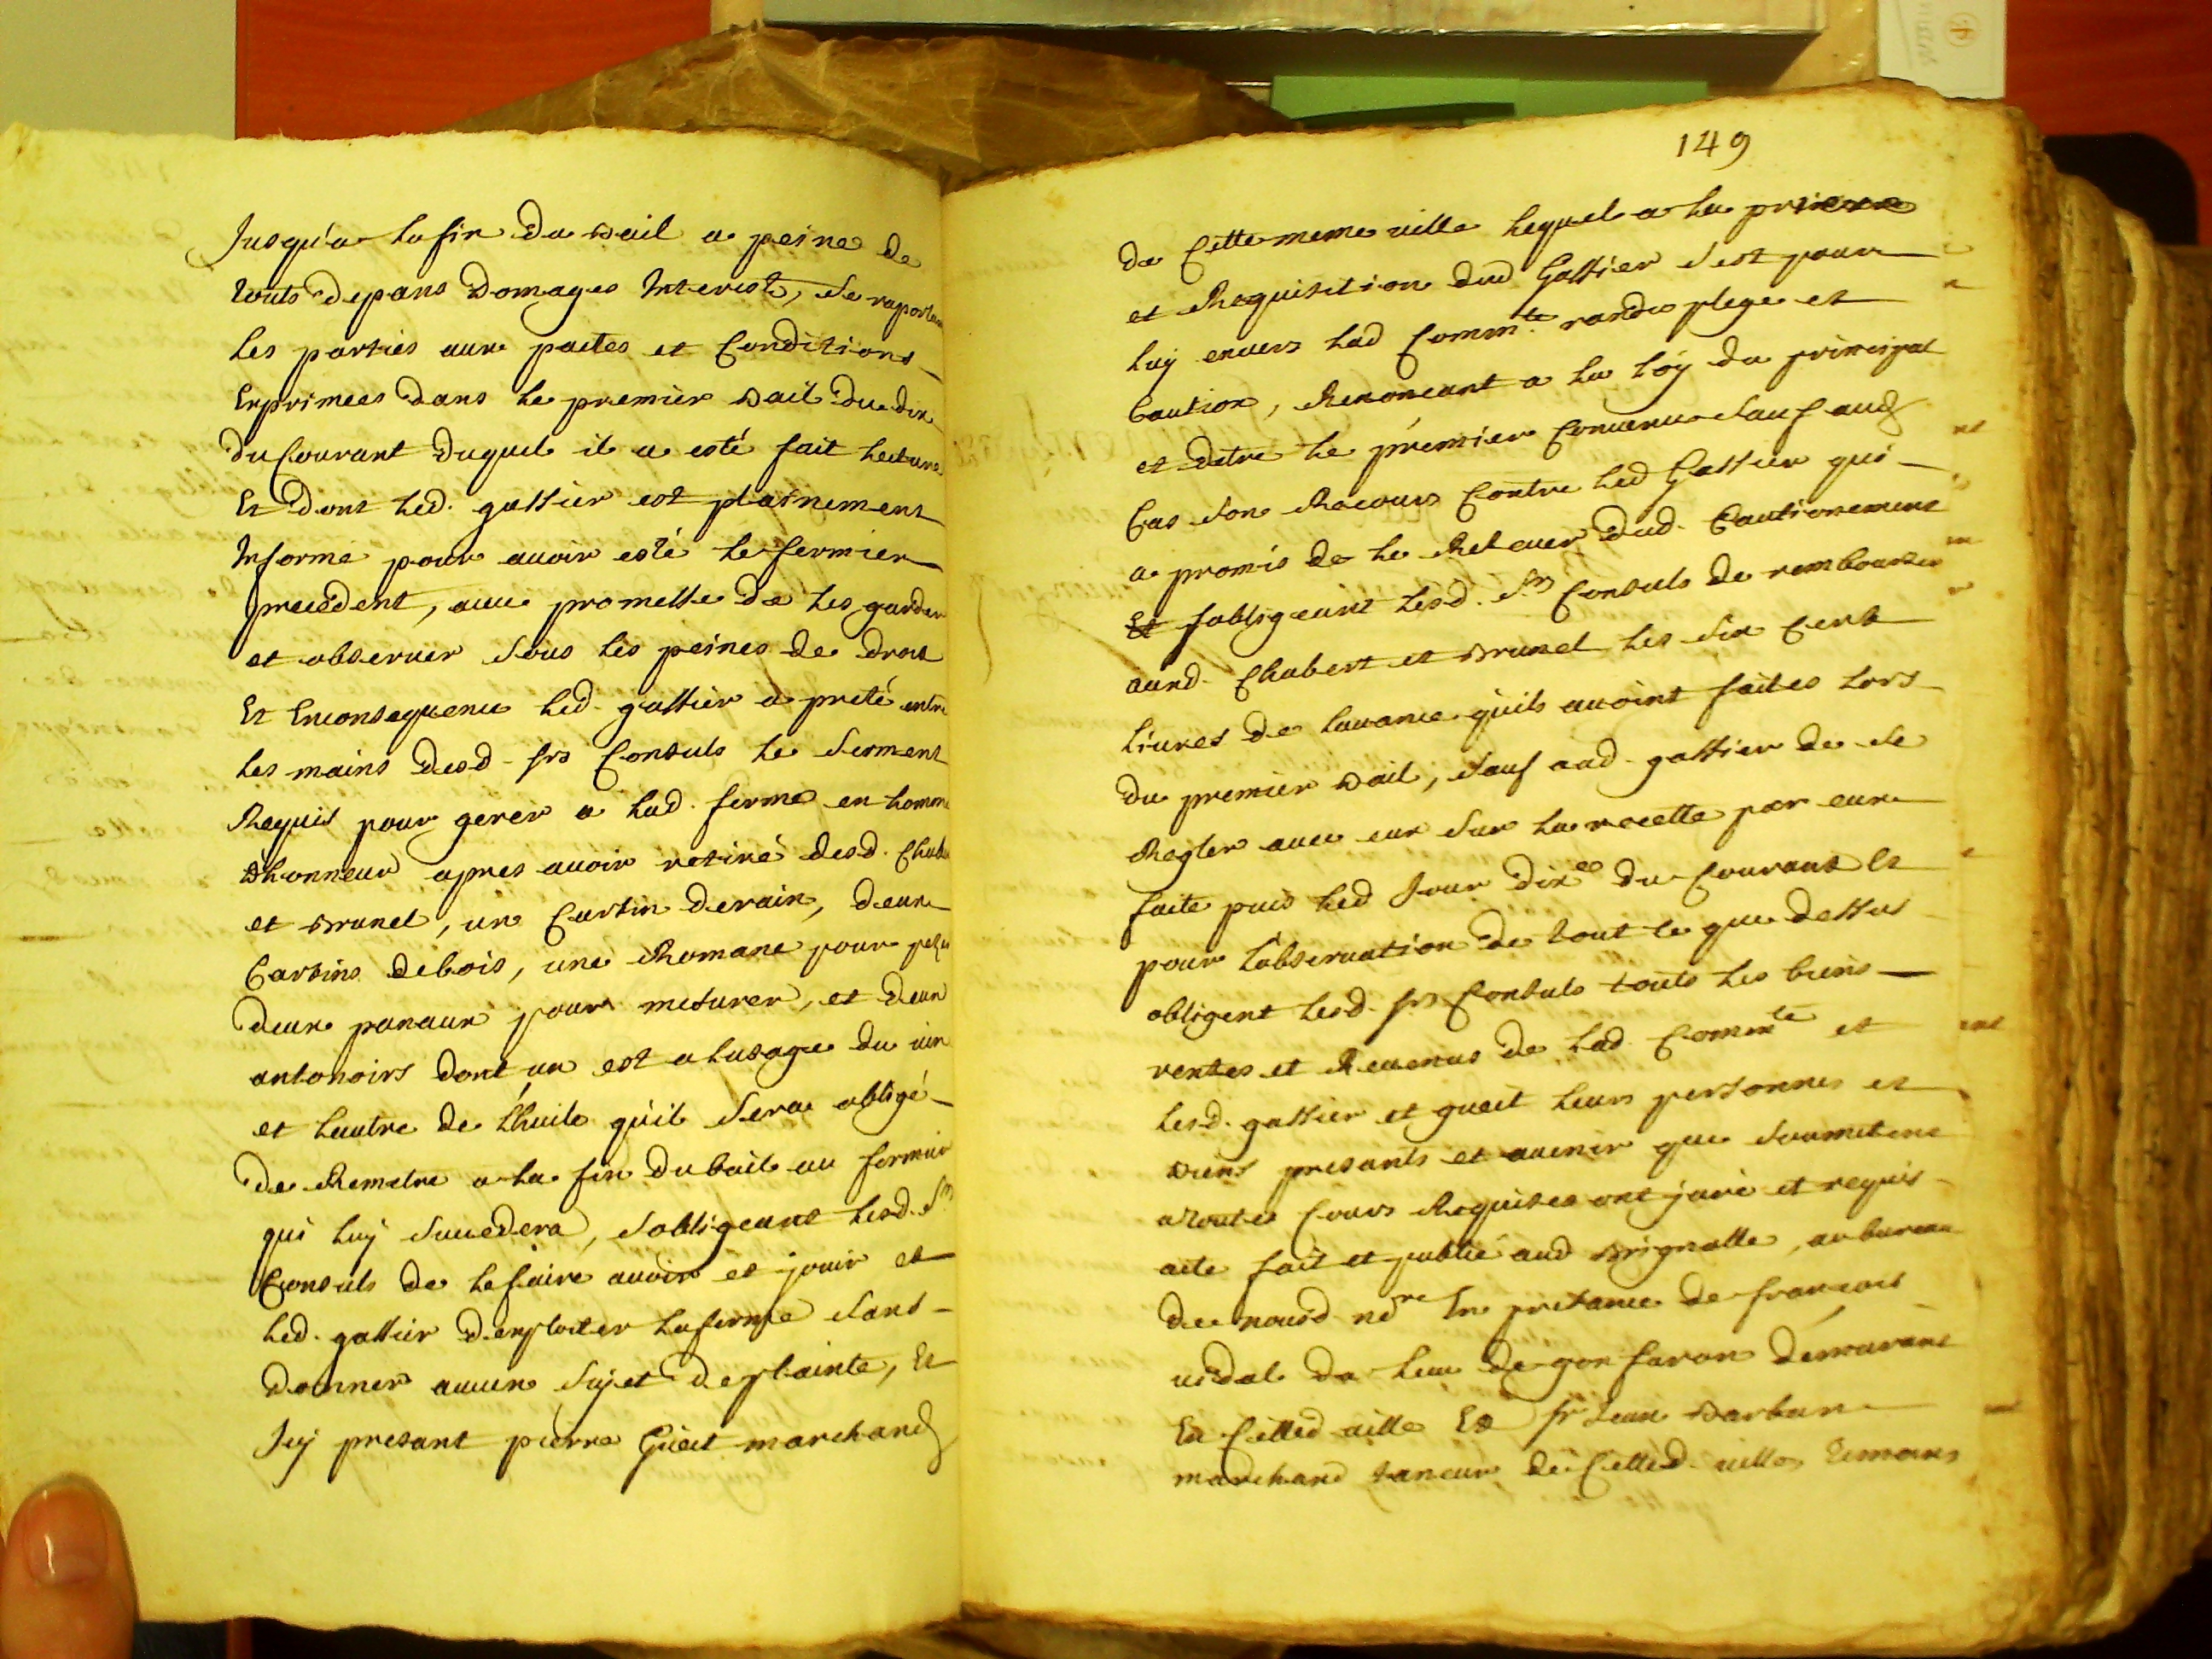 Jusqu'a la fin du bail a peine de
touts depans domages Interests, se raportant
les parties aux pactes et Conditions
Exprimees dans le premier bail du dix
du Courant duquel il a esté fait lecture
Et dont led. gassier est plainement
Informé pour avoir esté le fermier
precedent, avec promesse de les garder
et observer sous les peines de droit
Et Enconsequence led. gassier a preté entre
les mains desd. srs Consuls le serment
Requis pour gerer a lad. ferme en homme
dhonneur apres avoir retiré desd. Chabert
et brunel, un Cartin derain, deux
Cartins debois, une Romane pour peser
deux panaux pour mesurer, et deux
antonoirs dont un est a lusage du vin
et lautre de l'huile qu'il sera obligé
de Remetre a la fin du bail au fermier
qui luy succedera, sobligeant lesd. Srs
Consuls de le faire avoir et jouir et
led. gassier d'exploiter la ferme sans
donner aucun sujet de plainte, Et
Icy presant pierre Gueit marchand
149
de Cette meme ville lequel a la priere
et Requisition dud Gassier sest pour
luy envers lad Comm.te randu plege et
Caution, Renoncant a la loy du principal
et detre le premier Convenu sauf aud
Cas son Recours Contre led Gassier qui
a promis de le Relever dud. Cautionement
Et sobligeant lesd. Srs Consuls de rembourser
auxd. Chabert et brunel les six Cents
livres de lavance qu'ils avoint faites lors
du premier bail, sauf aud. gassier de se
Regler avec eux sur la recette par eux
faite puis led Jour dixe du Courant Et
pour l'observation de tout ce que dessus
obligent lesd. srs Consuls touts les biens
rentes et Revenus de lad. Commte et
lesd. gassier et gueit leurs personnes et
biens presants et avenir que soumetent
a toutes Cours Requises ont juré et requis
acte fait et publié aud brignolle, au bureau
de nousd nore En presance de francois
vidal du lieu de gonfaron demurant
En Cetted. ville Et sr Jean barbarn
marchand taneur de Cetted. ville temoins